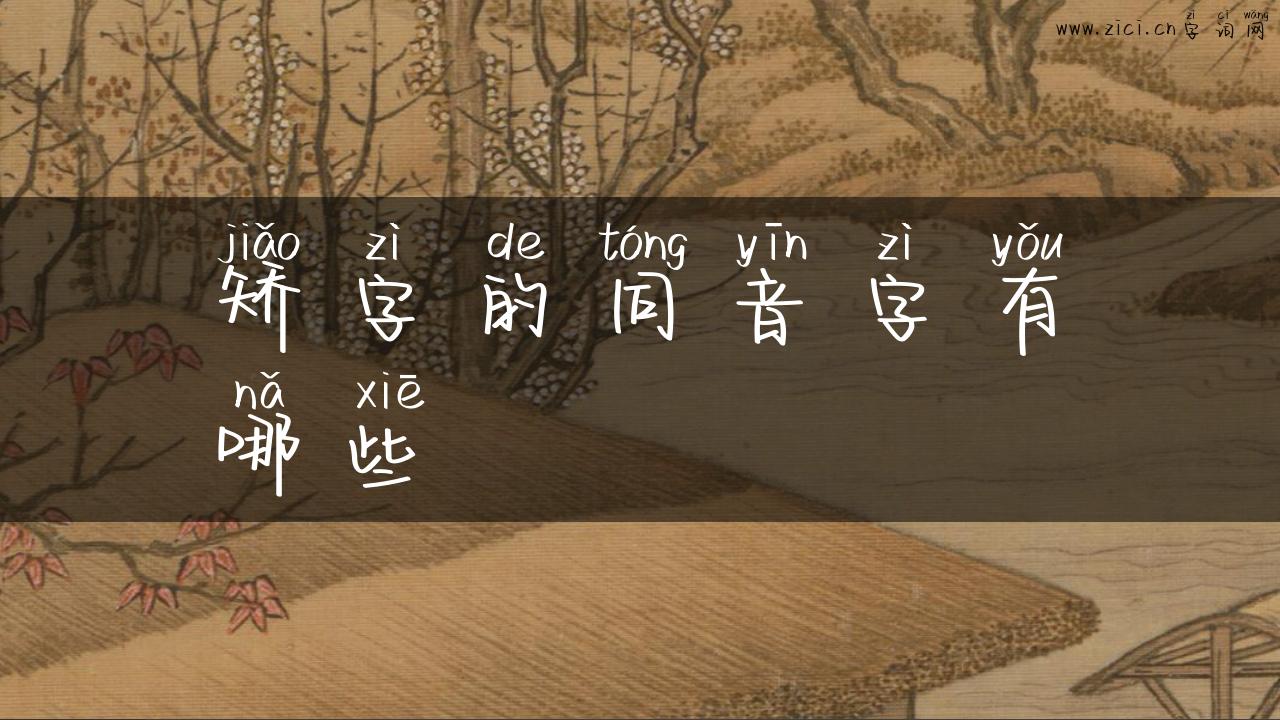 zì cí wǎng
www.zici.cn字词网
jiǎo zì de tóng yīn zì yǒu
矫字的同音字有
nǎ xiē
哪些